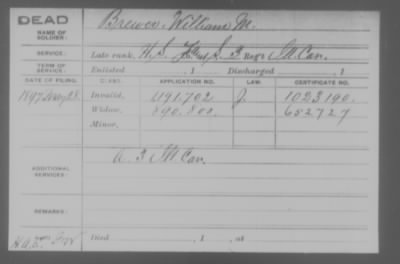 DEAD
NAME OF SOLDIER:
Brewer, William M.
SERVICE:
Late rank, F. & S. 3 Reg't M. Cav.
TERM OF SERVICE:
Enlisted , 1 Discharged , 1
DATE OF FILING. CLASS. APPLICATION NO. LAW. CERTIFICATE NO.
1897 Invalid, 1191.702 J. 1023.190.
Widow, 890.800. 652727
Minor,
ADDITIONAL SERVICES:
A. 3 M. Cav.
REMARKS:
Died , 1 , at